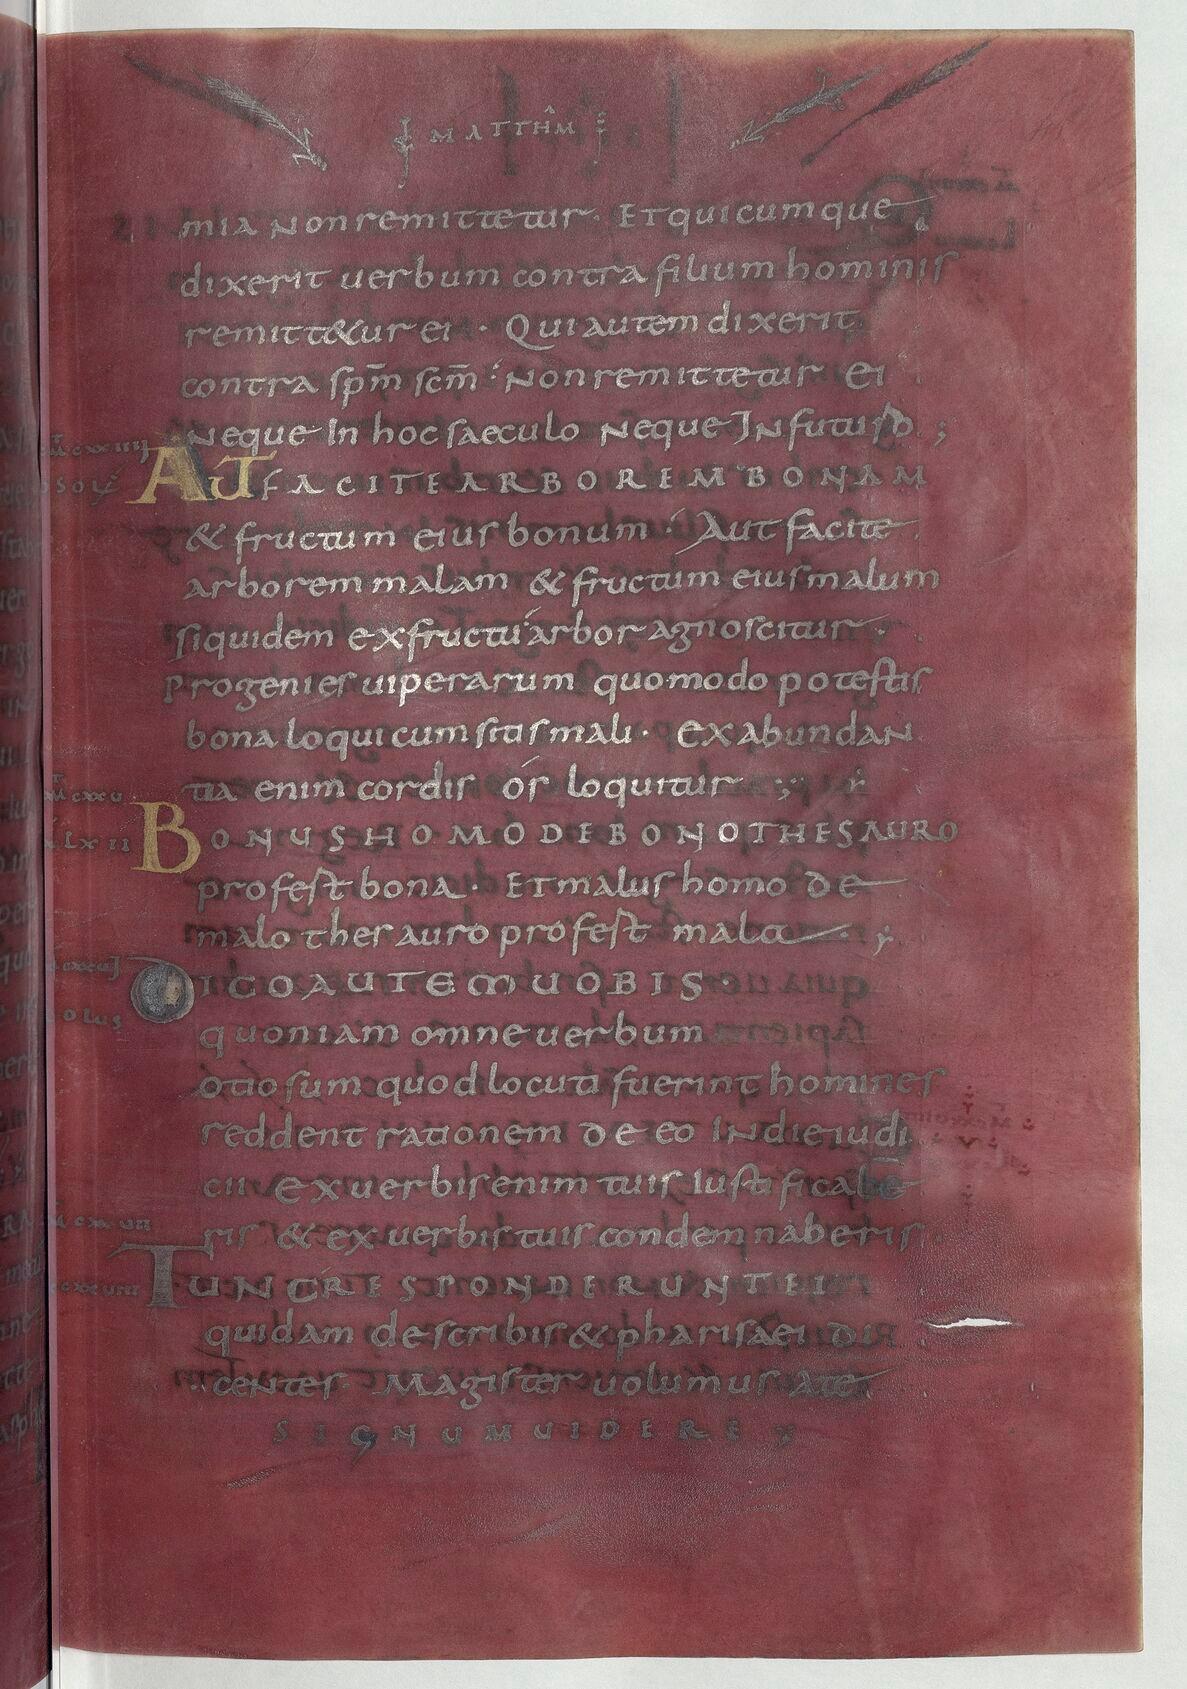 MATTHM
mia non remittetur. Et quicumque
dixerit uerbum contra filium hominis
remitt&ur ei . Qui autem dixerit
contra sp̄m sc̄m . Non remittetur ei
Neque In hoc saeculo Neque In futuro ;
AUT FACITE ARBOREM BONAM
& fructum eius bonum . Aut facite
arborem malam & fructum eius malum
siquidem ex fructu arbor agnoscitur .
Progenies uiperarum quomodo potestis
bona loqui cum sitis mali . Ex abundan
tia enim cordis os loquitur ;
BONUS HOMO DE BONO THESAURO
profest bona . Et malus homo de
malo thesauro profest mala .
DICO AUTEM UOBIS
quoniam omne uerbum
otiosum quod locuti fuerint homines
reddent rationem de eo In die iudi
cii . Ex uerbis enim tuis Iustificabe
ris & ex uerbis tuis condemnaberis .
TUNC RESPONDERUNT EI
quidam de scribis & pharisaei di
centes . Magister uolumus a te
SIGNUM UIDERE